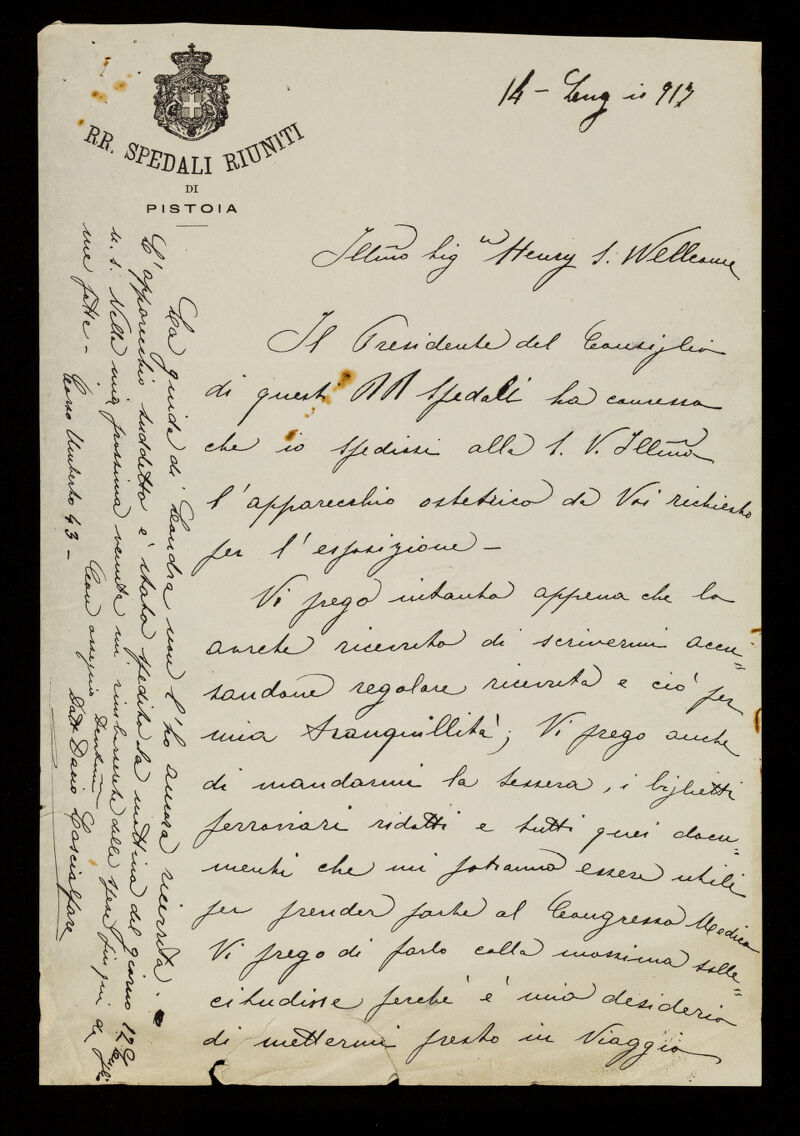 RR. SPEDALI RIUNITI
DI
PISTOIA
14 - Lug io 913
Illmo Sig r Henry S. Wellcome
Il Presidente del Consiglio
di questi RR Spedali ha concesso
che io spedissi alla S. V. Illma
l'apparecchio ostetrico da Voi richiesto
per l'esposizione -
Vi prego intanto appena che lo
avrete ricevuto di scrivermi accu=
sandone regolare ricevuta e ciò per
mia tranquillità; Vi prego anche
di mandarmi la tessera, i biglietti
ferroviari ridotti e tutti quei docu=
menti che mi potranno essere utili
per prender parte al Congresso Medico
Vi prego di farlo colla massima solle=
citudine perchè è mio desiderio
di mettermi presto in viaggio
La guida di Londra non l'ho ancora ricevuta.
L'apparecchio suddetto è stato spedito la mattina del giorno 12 Luglio
u. s. Nella mia prossima venuta mi rimborserete delle spese fin qui da
me fatte -
Con ossequio
Dott Dario Cascialfare
Corso Umberto 43 -